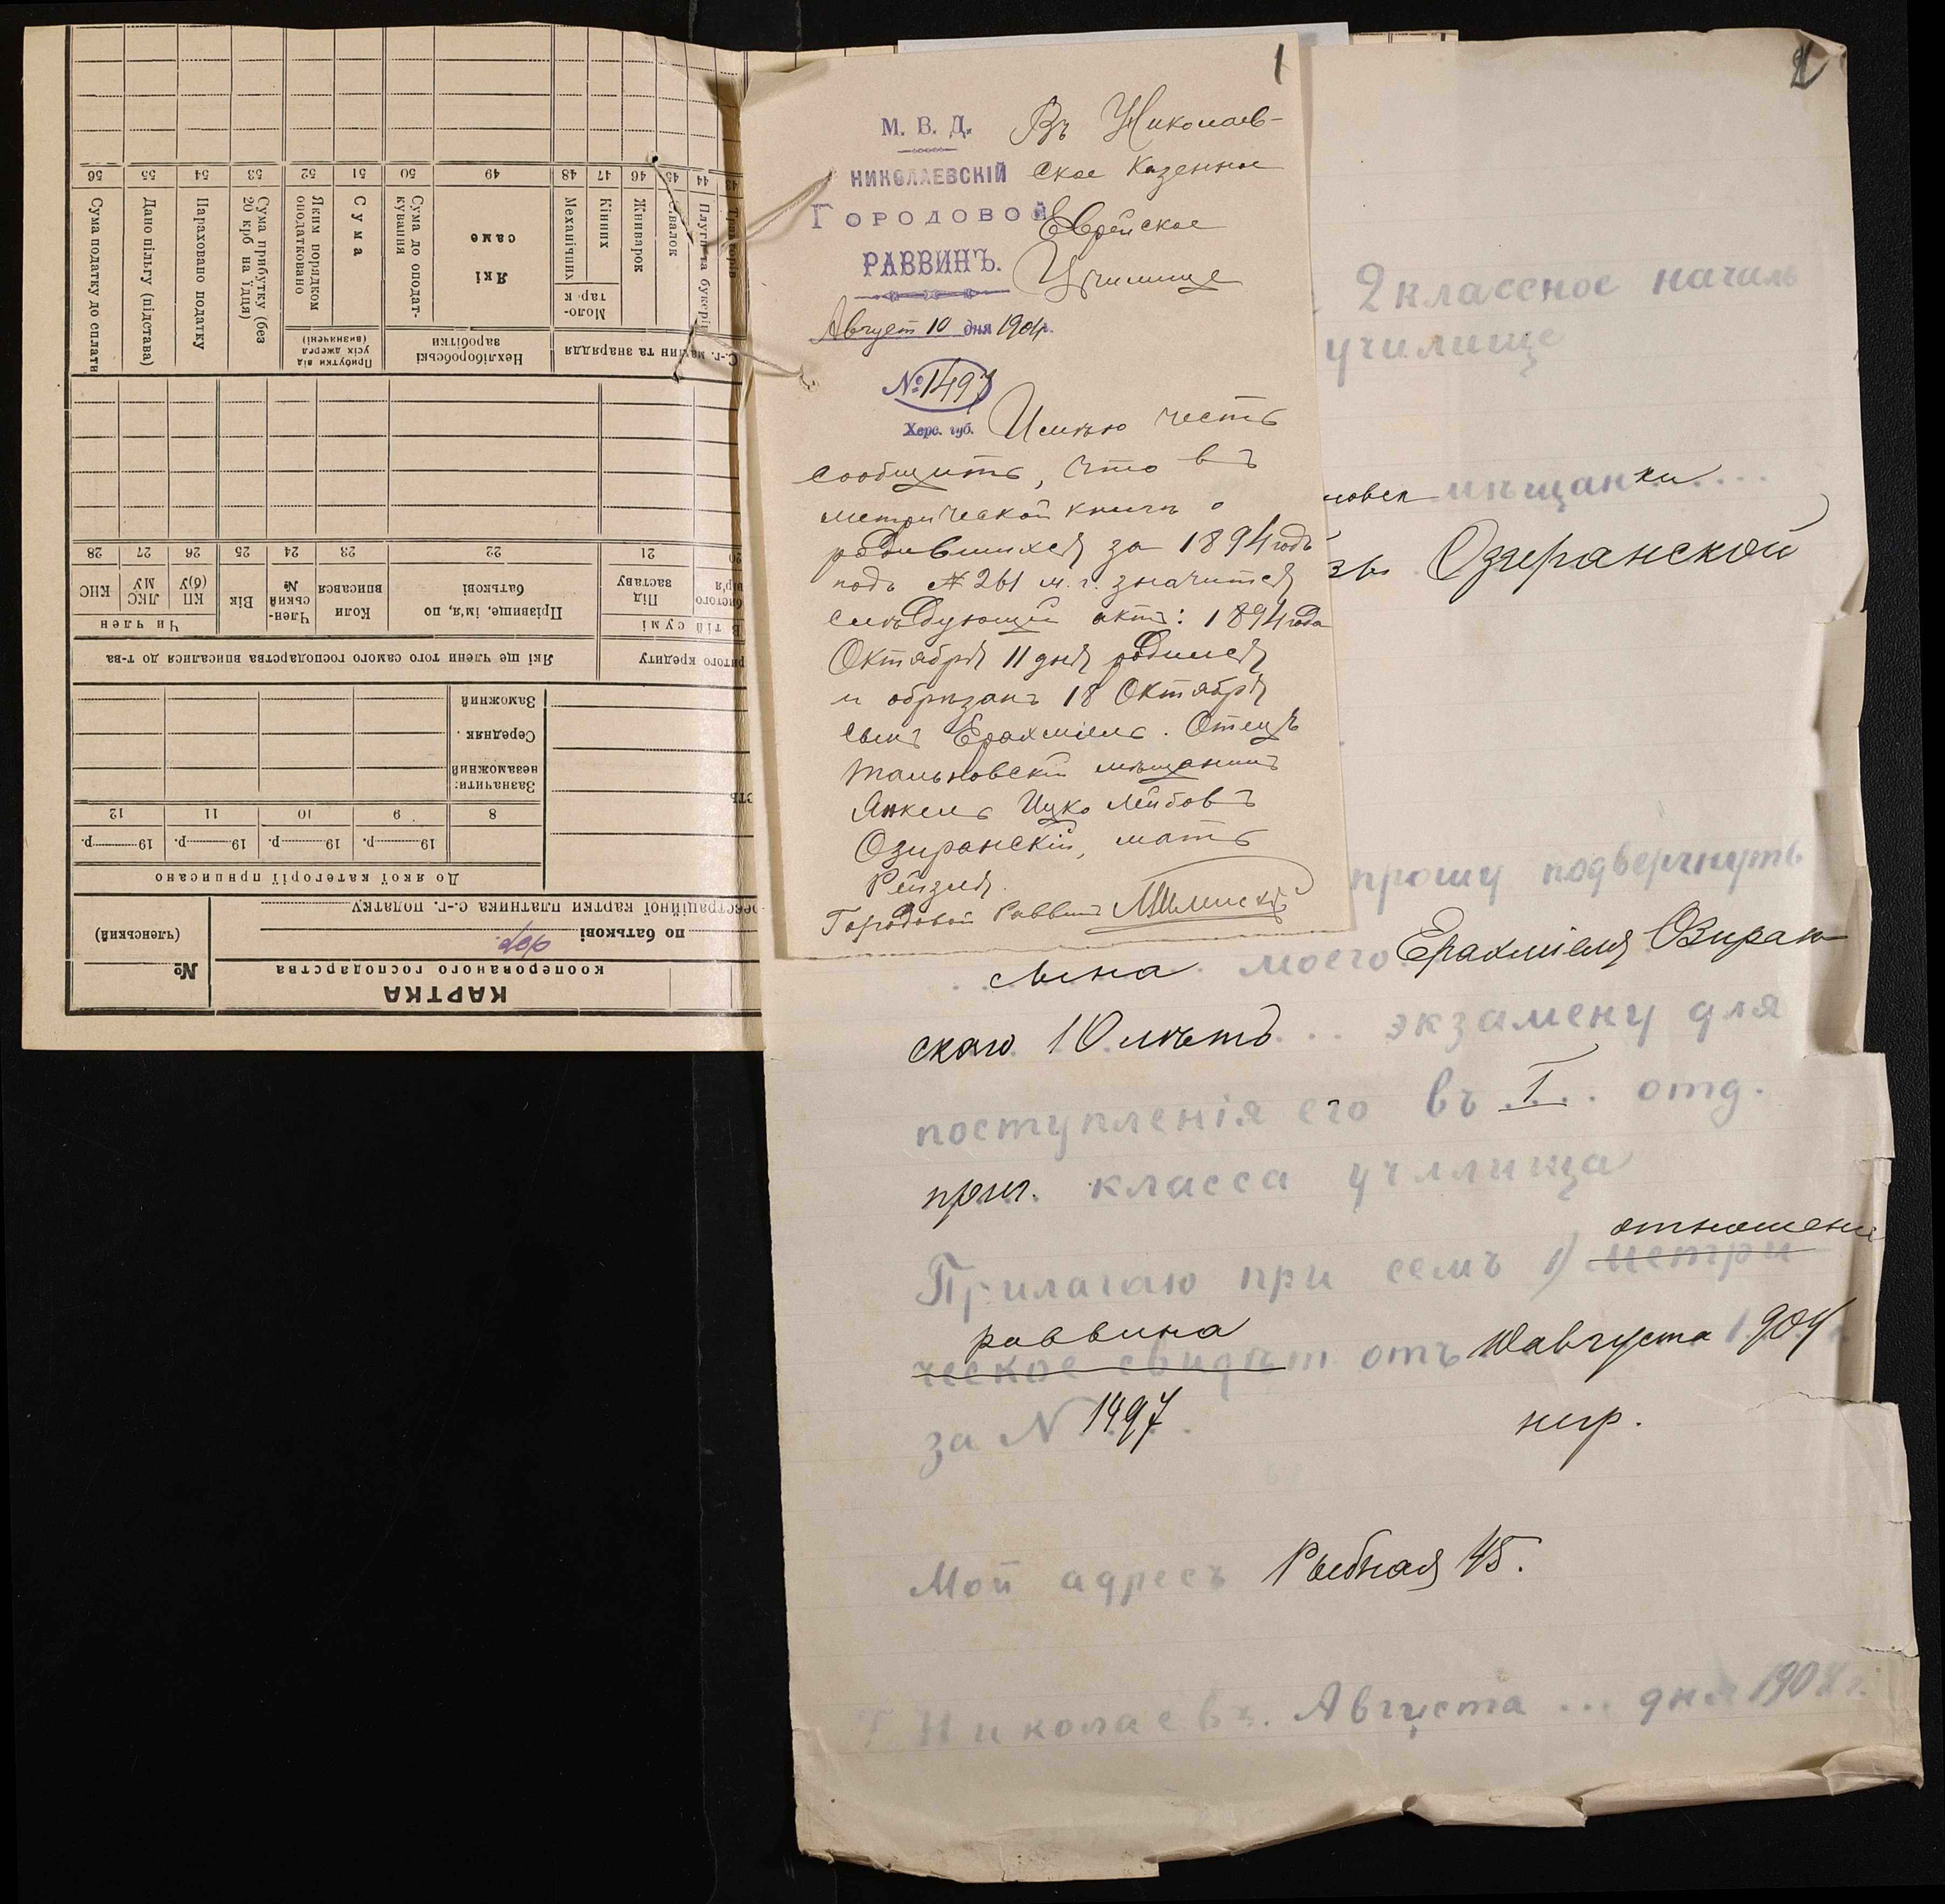 1
М. В. Д.
НИКОЛАЕВСКІЙ
ГОРОДОВОЙ
РАВВИНЪ.
Август 10 дня 1904г.
№ 1497
Херс. губ.
Въ Николаев-
ское Казенное
Еврейское
Училище
Имѣю честь
сообщить, что въ
метрической книгѣ о
родившихся за 1894 годъ
подъ № 261 м. г. значится
слѣдующій актъ: 1894 года
Октября 11 дня родился
и обрѣзанъ 18 Октября
сынъ Ерахміель. Отецъ
Тальновскій мѣщанинъ
Янкель Ицко Лейбовъ
Озиранскій, мать
Рейзля.
Городовой Раввинъ
2 классное началь
училище
мѣщанки
Озиранской
прошу подвергнуть
сына моего Ерахміеля Озиран
скаго 10 лѣтъ экзамену для
поступленія его въ I отд.
приг. класса училища
отношение
Прилагаю при семъ 1) метри
раввина
ческое свидѣт отъ 10 августа 1904
за N 1497
Мой адресъ Рыбная 45.
Г Николаевъ. Августа ... дня 190 г.
КАРТКА
кооперованого господарства
№
(членський)
по батькові
реєстраційної картки платника с.-г. податку
До якої категорії приписано
19 р. 19 р. 19 р. 19 р.
8 9 10 11 12
Зазначити:
незаможний
Середняк
Заможний
ритого кредиту
Які ще члени того самого господарства вписалися до т-ва
В тій сумі
Під заставу
Прізвище, ім'я, по батькові
Коли вписався
Член-ський №
Вік
Чи член
КП (б)У
ЛКС МУ
КНС
20 21 22 23 24 25 26 27 28
С.-г. машин та знаряддя
Нехліборобські заробітки
Прибутки від усіх джерел (визначені)
Тракторів
Плугів та букерів
Жниварок
Моло-тарк
Кінних
Механічних
Які саме
Сума до оподат-кування
Сума
Яким порядком оподатковано
Сума прибутку (без 20 крб на їдця)
Нараховано податку
Дано пільгу (підстава)
Сума податку до сплати
43 44 45 46 47 48 49 50 51 52 53 54 55 56